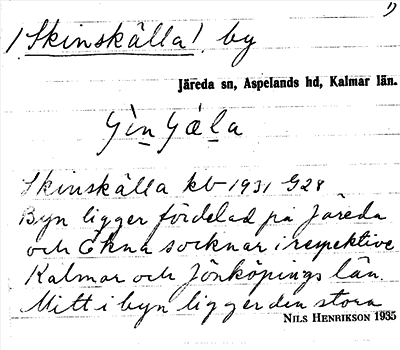 1)
/Skinskälla/ by
Järeda sn, Aspelands hd, Kalmar län.
Skinskälla kb 1931 G28
Byn ligger fördelad på Järeda
och Ökna socknar i respektive
Kalmar och Jönköpings län.
Mitt i byn ligger den stora
NILS HENRIKSON 1935